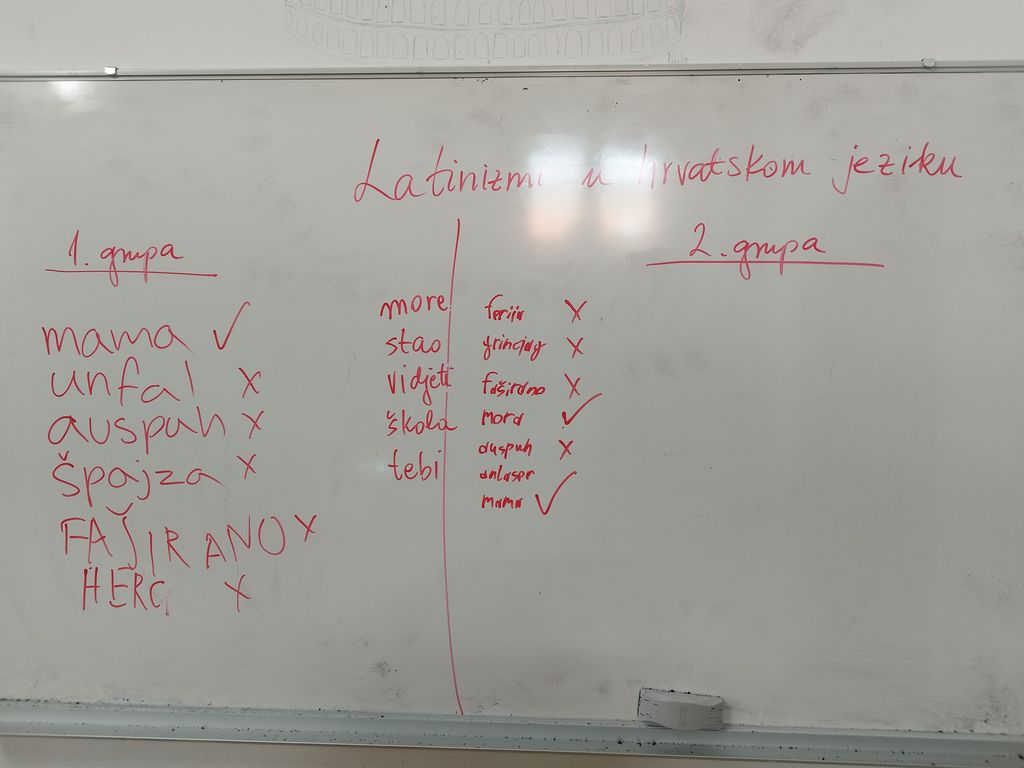 Latinizmi u hrvatskom jeziku
1. grupa
mama ✓
unfal x
auspuh x
špajza x
FAŠIRANO x
HERC x
more
stao
vidjeti
škola
tebi
2. grupa
x
x
faširano x
mora ✓
auspuh x
anlaser
mama ✓